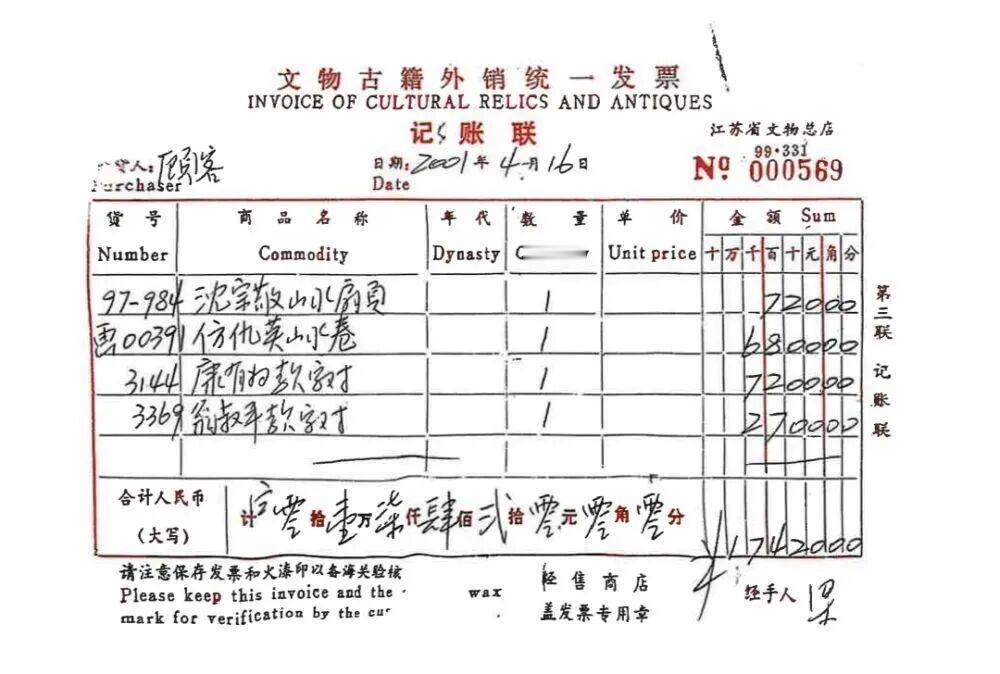 文物古籍外销统一发票
INVOICE OF CULTURAL RELICS AND ANTIQUES
记账联
江苏省文物总店
99·331
货人: 顾客 日期: 2001年4月16日 Nº 000569
Purchaser Date
货号 商品名称 年代 数量 单价 金额 Sum
Number Commodity Dynasty Unit price 十万千百十元角分
97-984 沈宗敬山水扇页 1 72000
画00391 仿仇英山水卷 1 680000
3144 康有为款字对 1 720000
3369 翁叔平款字对 1 270000
合计人民币
(大写)
计 零拾壹万柒仟肆佰贰拾零元零角零分 ¥1742000
第三联 记账联
请注意保存发票和火漆印以备海关验核 经售商店 经手人
Please keep this invoice and the wax 盖发票专用章
mark for verification by the